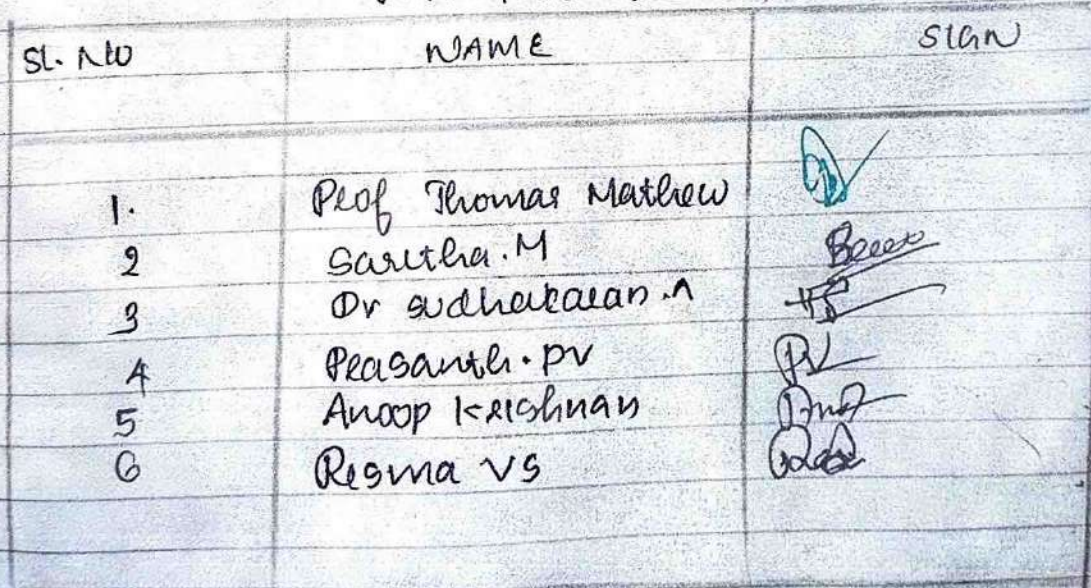 Sl. No NAME SIGN
1. Prof Thomas Mathew
2 Saritha.M
3 Dr Sudhakaran.A
4 Prasanth.PV
5 Anoop Krishnan
6 Resma VS